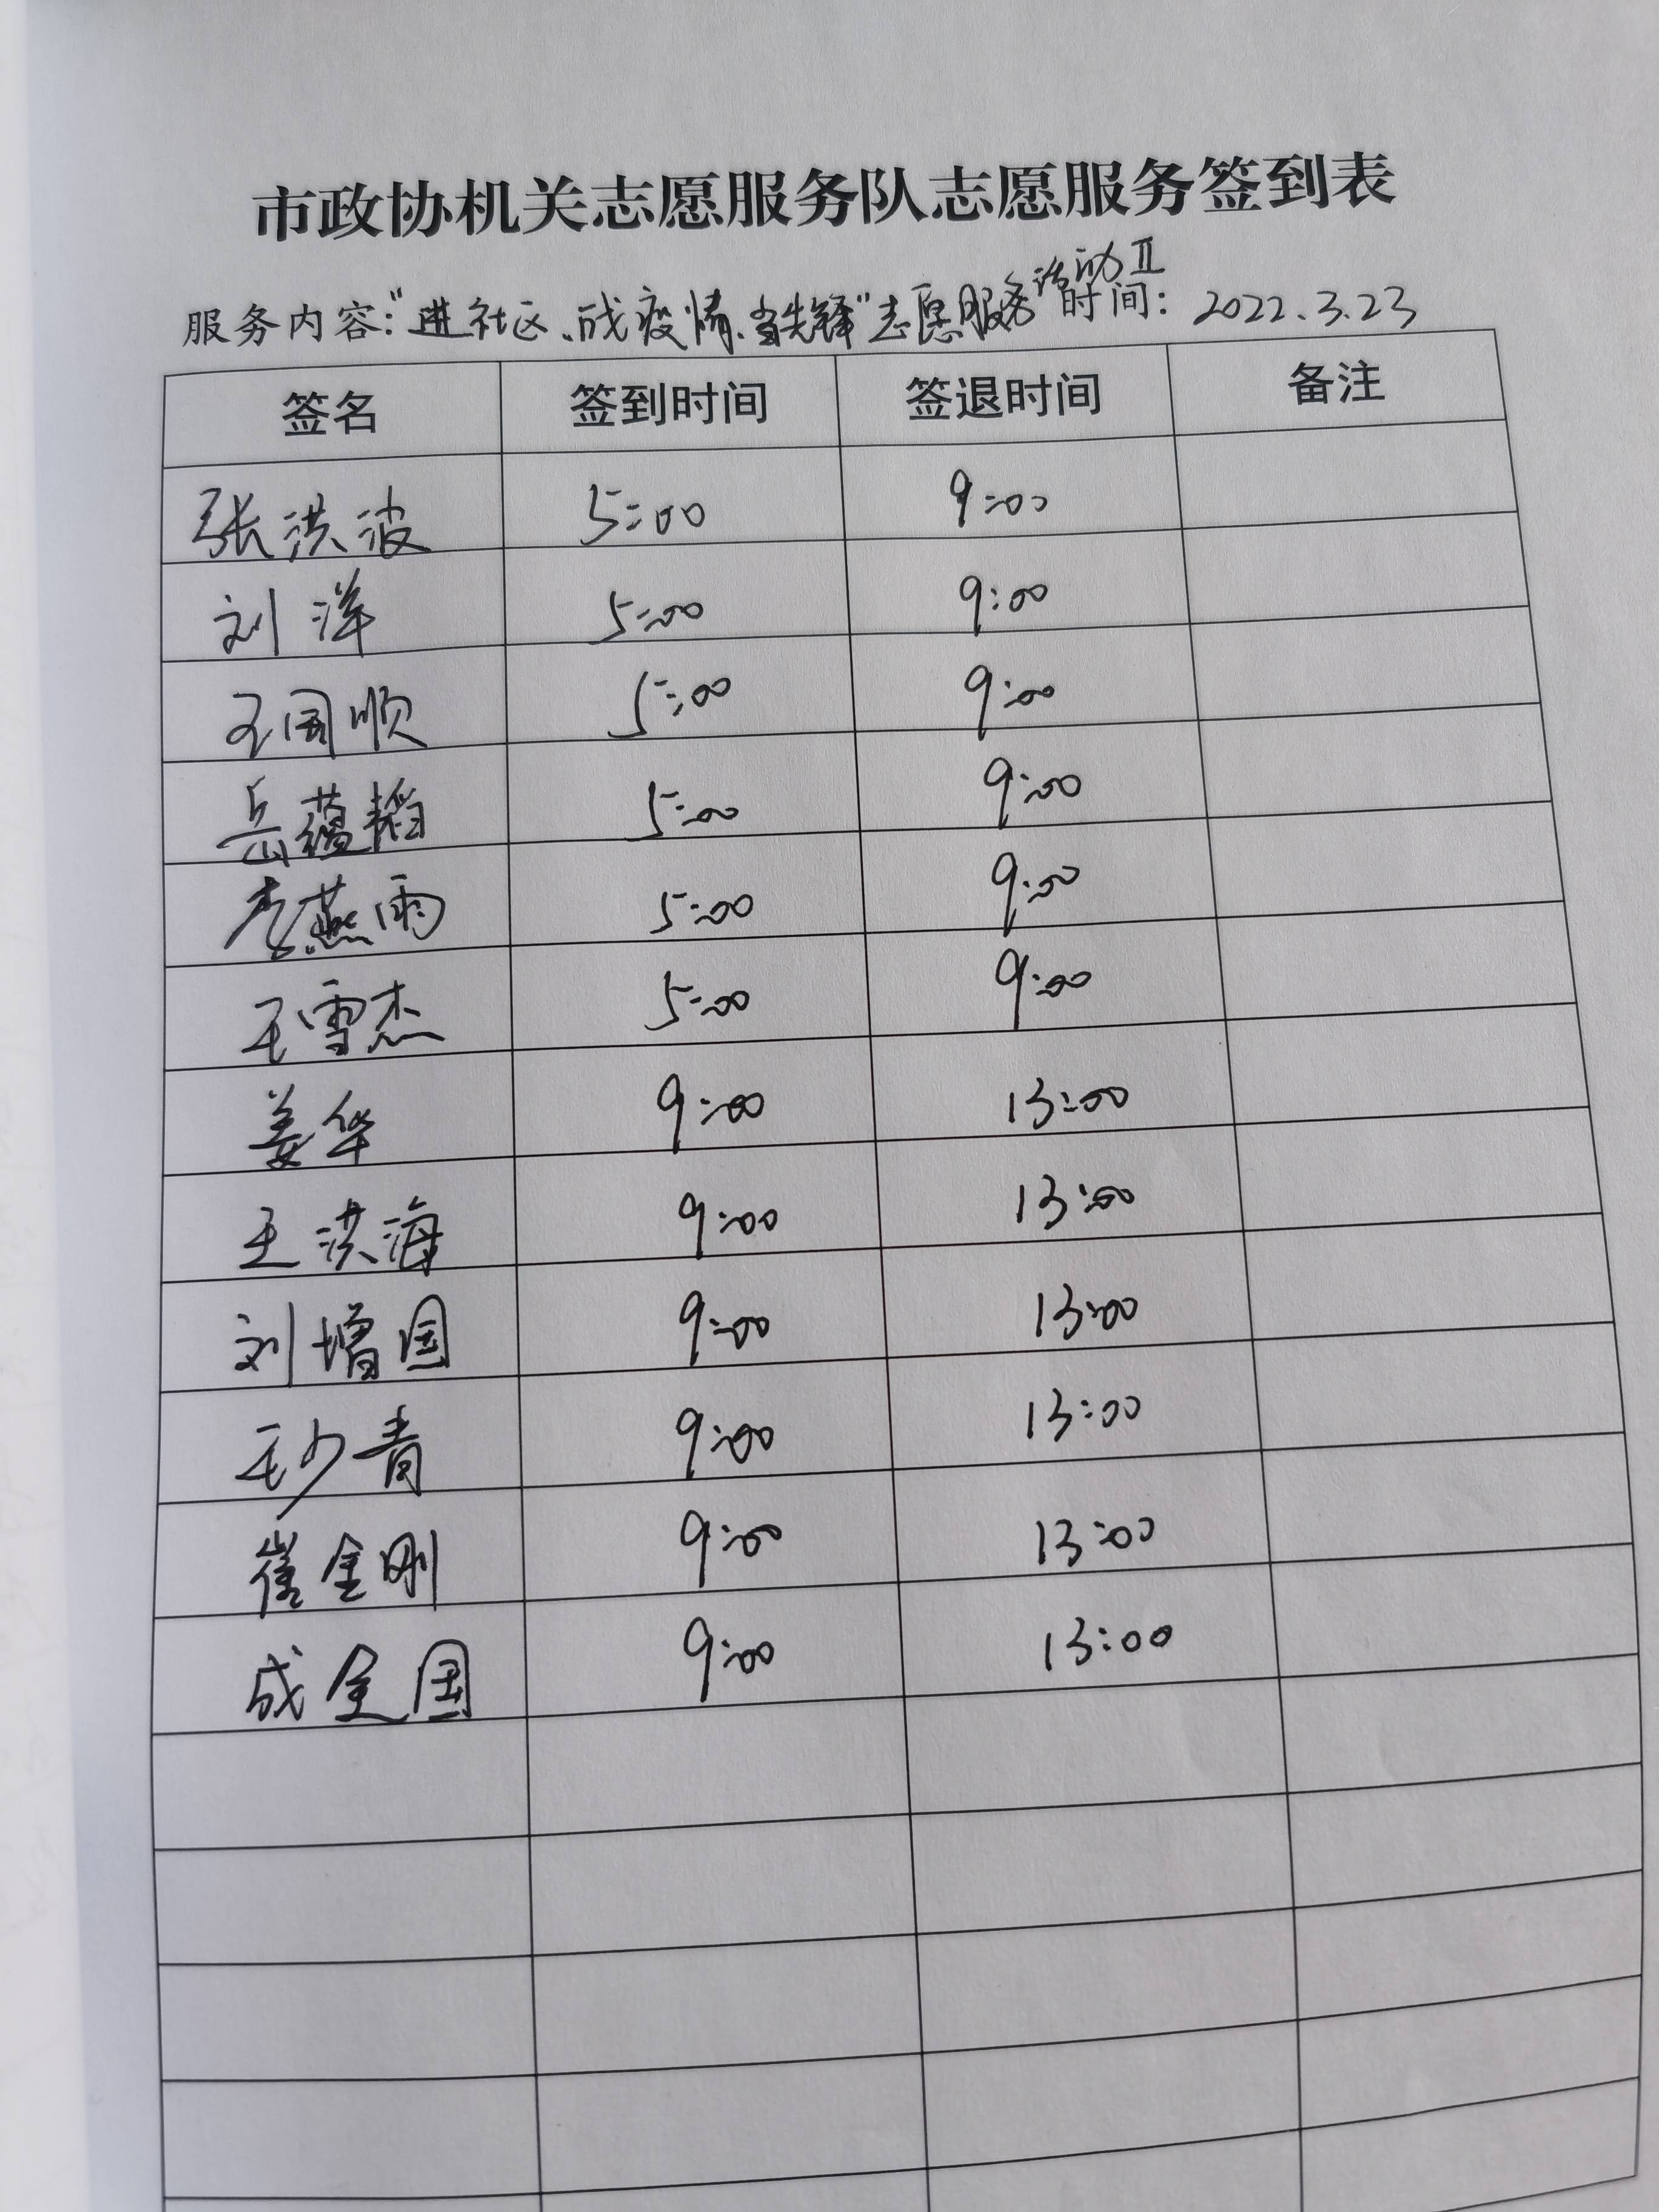 市政协机关志愿服务队志愿服务签到表
服务内容：“进社区、战疫情、当先锋”志愿服务活动Ⅱ 时间：2022.3.23
签名 签到时间 签退时间 备注
张洪波 5:00 9:00
刘洋 5:00 9:00
王国顺 5:00 9:00
岳蕴韬 5:00 9:00
李燕雨 5:00 9:00
王雪杰 5:00 9:00
姜华 9:00 13:00
王洪海 9:00 13:00
刘增国 9:00 13:00
王少青 9:00 13:00
崔金刚 9:00 13:00
成全国 9:00 13:00